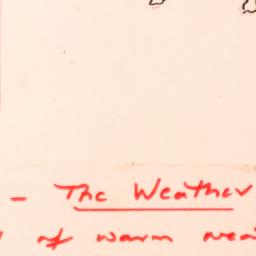 - The Weather
of warm